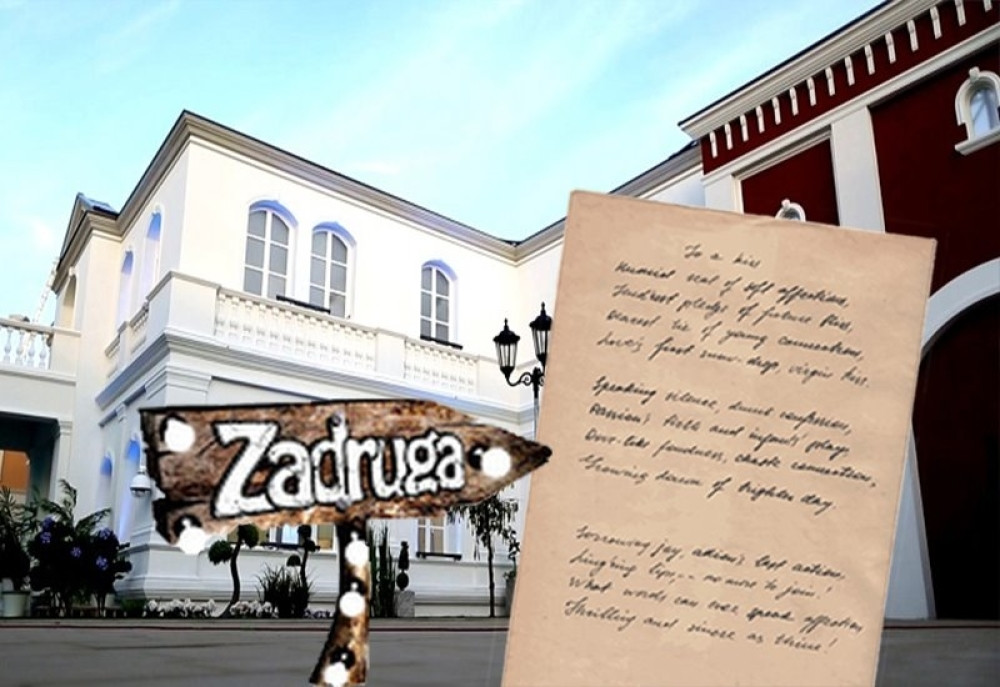 Zadruga
To a kiss
Humid seal of soft affections,
Tenderest pledge of future bliss,
Dearest tie of young connections,
Love's first snow-drop, virgin kiss.
Speaking silence, dumb confession,
Passion's birth and infants' play,
Dove-like fondness, chaste concession,
Glowing dawn of brighter day.
Sorrowing joy, adieu's last action,
Ling'ring lips, -- no more to join!
What words can ever speak affection
Thrilling and sincere as thine!